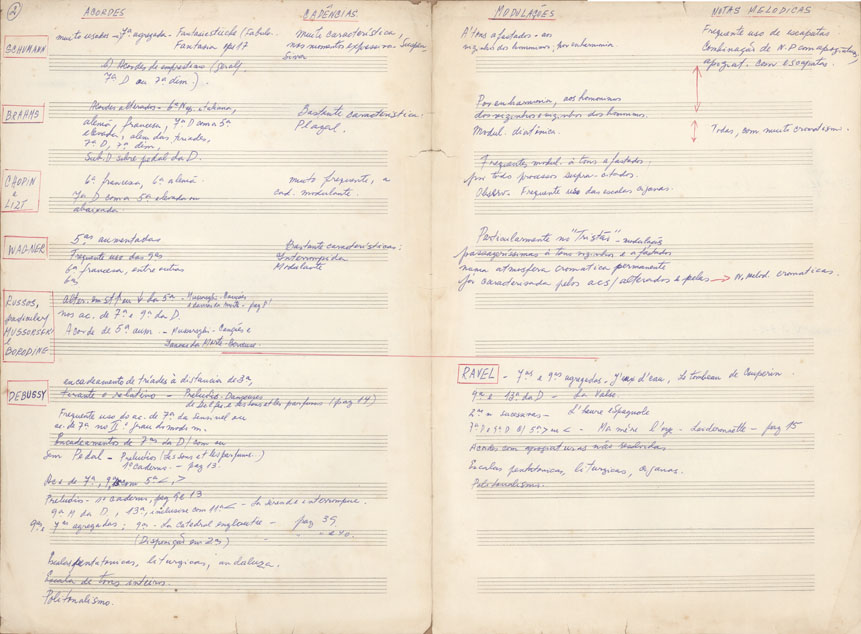 2
ACORDES
CADÊNCIAS
MODULAÇÕES
NOTAS MELODICAS
SCHUMANN
muito usados - 7ª agregada - Fantasiestücke (Fabula
Fantasia opus 17
b) Acordes de empréstimo (geral/
7ª D ou 7ª dim.).
muito característica,
nos momentos expressivos Suspen
sivos
A'tons afastados - aos
vizinhos dos homonimos, por enharmonia.
Frequente uso de escapatas
Combinação de N.P com apogiatura,
apogiat. com escapatas.
BRAHMS
Acordes alterados - 6ª Nap., italiana,
alemã, francesa, 7ª D com a 5ª
elevada, além das triades,
7ª D, 7ª dim,
Sub.D sobre pedal da D.
Bastante característica.
Plagal.
Por enharmonia, aos homonimos
dos vizinhos e vizinhos dos homonimos.
Modul. diatônica.
Todas, com muito cromatismo.
CHOPIN
e
LIZT
6ª francesa, 6ª alemã
7ª D com a 5ª elevada ou
abaixada.
muito frequente, a
cad. modulante.
Frequentes modul. à tons afastados.
por todo processo supra-citados.
Observ. Frequente uso das escalas ciganas.
WAGNER
5ªs aumentadas
Frequente uso das 9ªs
6ª francesa, entre outras
6ªs
Bastante características:
Interrompida
Modulante
Particularmente no "Tristão" - modulação
passageiríssimas à tons vizinhos e afastados
numa atmosfera cromatica permanente
foi caracterizada pelos acs/ alterados e pelas → N. melod. cromaticas.
RUSSOS,
MUSSORSKI
e
BORODINE
alter. em ↑ ou ↓ da 5ª - Mussorgski
nos ac. de 7ª e 9ª da D.
Acorde de 5ª aum. - Mussorgski - Canções e
Danças da Morte - Berceuse
DEBUSSY
encadeamento de triades à distancia de 3ª,
tirante o relativo - Preludio: Danseuses
de Delphes e Les sons et les parfums (pag 14)
Frequente uso do ac. de 7ª da sensivel ou
ac. de 7ª no IIº grau do modo m.
Encadeamentos de 7ªs da D/ com ou
sem Pedal - Preludios (Les sons et les parfums.)
1º caderno. - pag 13.
Acs de 7ª, 9ª com 5ª <, >
Preludio - 1º caderno, pag 9 e 13
9ª M da D, 13ª, inclusive com 11ª < - La serenade interrompue.
9ªs, 7ªs agregadas; 9ªs - La catedral engloutie - pag 39
(Disposição em 2as) " - e 40.
Escalas pentatonicas, liturgicas, andaluza.
Escala de tons inteiros.
Politonalismo.
RAVEL - 7ªs e 9ªs agregados - Jeux d'eau, Le tombeau de Couperin
9ª e 13ª da D - La Valse
2ªs sucessivas - L'heure espagnole
7ª D e 9ª D c/ 5ª > ou < - Ma mère l'oye - Laideronnette - pag 15
Acordes com apogiaturas não resolvidas
Escalas pentatonicas, liturgicas, ciganas.
Politonalismo.